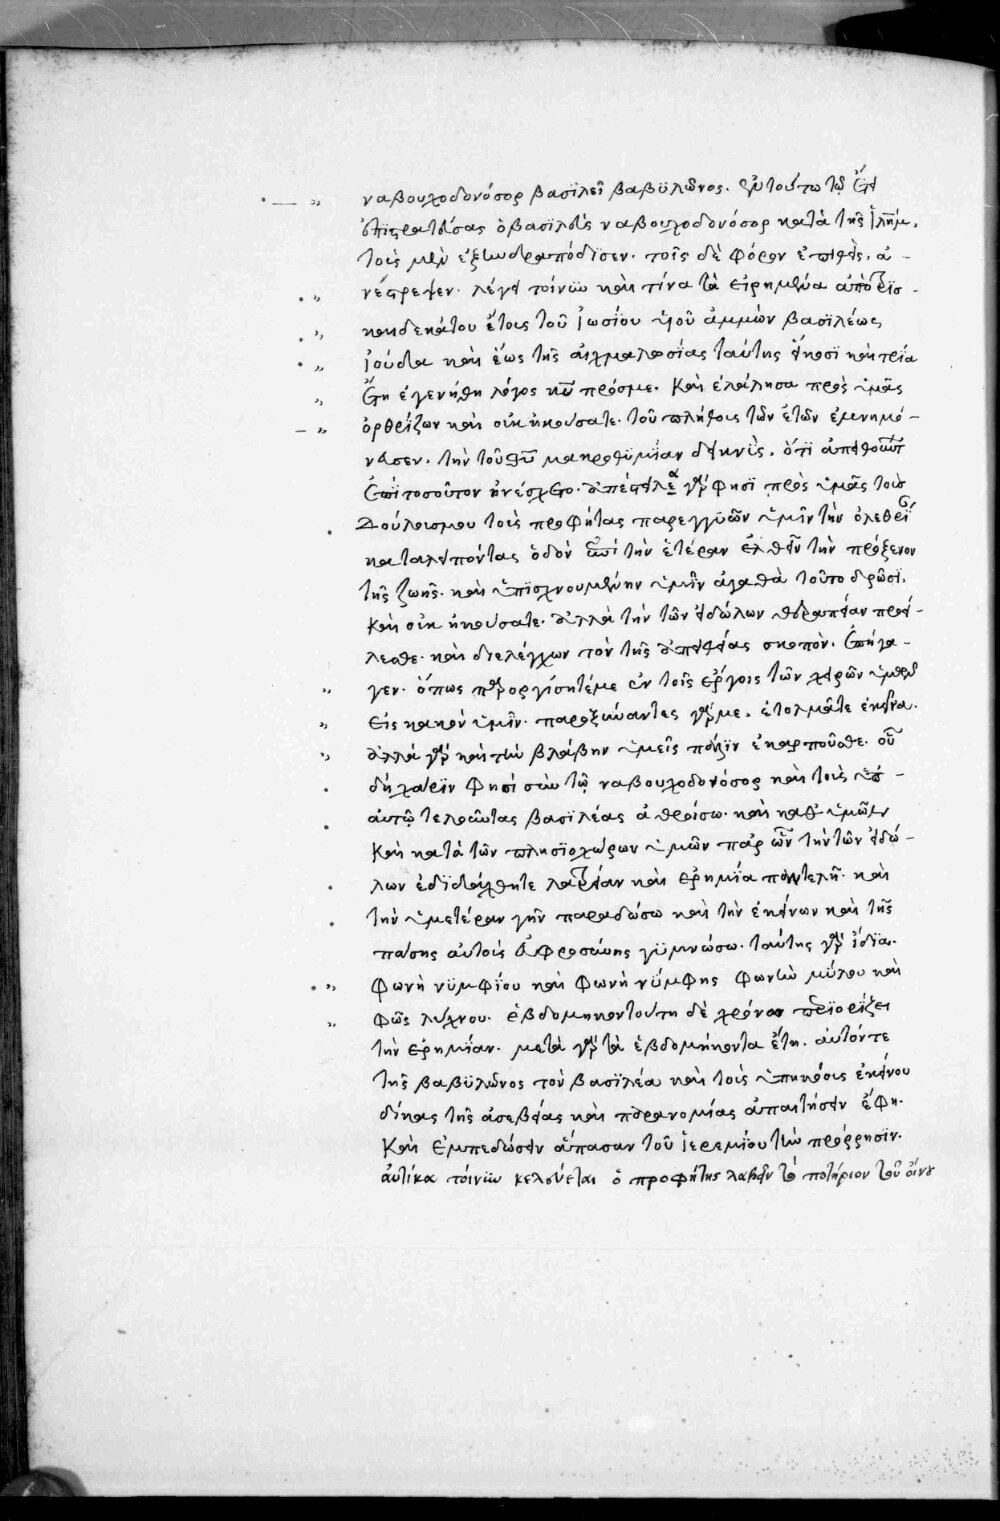 ναβουχοδονόσορ βασϊλεῖ βαβϋλῶνος. ἐν τούτω τῶ ἔτει
ἐπιστρατεύσας ὁ βασϊλεὺς ναβουχοδονόσορ κατὰ τῆς ἱλῆμ.
τοὺς μὲν ἐξηνδραπόδϊσεν. τοῖς δὲ φόρον ἐπιθεὶς, ἀ-
νέστρεψεν. λέγει τοίνυν καὶ τίνα τὰ εἰρημένα ἀπὸ τρϊσ-
καιδεκάτου ἔτους τοῦ ἰωσίου υἱοῦ ἀμμὼν βασϊλέως
ἰούδα καὶ ἕως τῆς αἰχμαλωσίας ταύτης εἴκοσϊ καὶ τρία
ἔτη ἐγενήθη λόγος κυ πρόσμε. Καὶ ἐλάλησα πρὸς ὑμᾶς
ὀρθρίζων καὶ οὐκ ἠκούσατε. τοῦ πλήθους τῶν ἐτῶν ἐμνημό-
νευσεν. τὴν τοῦ θυ μακροθϋμίαν δεικνὺς, ὅτϊ ἀπειθοῦντ
ἐπὶ τοσοῦτον ἠνέσχετο. ἀπέστελλα γὰρ φησϊ πρὸς ὑμᾶς τοὺσ
Δούλουσμου τοὺς προφήτας παρεγγυῶν ὑμῖν τὴν ὀλεθρϊ
καταλειπόντας ὁδὸν ἐπὶ τὴν ἑτέραν ἐλθεῖν τὴν πρόξενον
τῆς ζωῆς. καὶ ὑπϊσχνουμένην ὑμῖν ἀγαθὰ τοῦτο δρῶσϊ.
Καὶ οὐκ ἠκούσατε. ἀλλὰ τὴν τῶν εἰδώλων θεραπείαν προεί-
λεσθε. καὶ διελέγχων τὸν τῆς ἀπειθείας σκοπὸν. ἐπήγα-
γεν. ὅπως παροργίσητέμε ἐν τοῖς ἔργοις τῶν χειρῶν ὑμῶν
εἰς κακὸν ὑμῖν. παροξύναντες γάρ με. ἐτολμᾶτε ἐκεῖνα.
ἀλλὰ γὰρ καὶ τὴν βλάβην ὑμεῖς πάλϊν ἐκαρποῦσθε. οὗ
δὴ χάρϊν φησὶ σὺν τῶ ναβουχοδονόσορ καὶ τοὺς ὑπ-
αυτῶ τελοῦντας βασϊλέας ἀθροίσω. καὶ καθ ὑμῶν
Καὶ κατὰ τῶν πλησϊοχώρων ὑμῶν παρ ὧν τὴν τῶν εἰδώ-
λων ἐδϊδάχθητε λατρείαν καὶ ἐρημία παντελῆ. καὶ
τὴν ὑμετέραν γῆν παραδώσω καὶ τὴν ἐκείνων καὶ τῆς
πάσης αὐτοὺς εὐφροσύνης γϋμνώσω. ταύτης γὰρ ἴδϊα.
φωνὴ νϋμφίου καὶ φωνὴ νύμφης φωνὴ μύλου καὶ
φῶς λύχνου. ἑβδομηκοντούτη δὲ χρόνον περϊορίζει
τὴν ἐρημίαν. μετὰ γὰρ τὰ ἑβδομήκοντα ἔτη. αὐτόντε
τῆς βαβϋλῶνος τὸν βασϊλέα καὶ τοὺς ὑπηκόους ἐκείνου
δίκας τῆς ἀσεβείας καὶ παρανομίας ἀπαιτήσειν ἔφη.
Καὶ ἐμπεδώσειν ἅπασαν τοῦ ἱερεμίου τὴν πρόρρησϊν.
ἀυτίκα τοίνυν κελεύεται ὁ προφήτης λαβεῖν τὸ ποτήριον τοῦ οἴνου